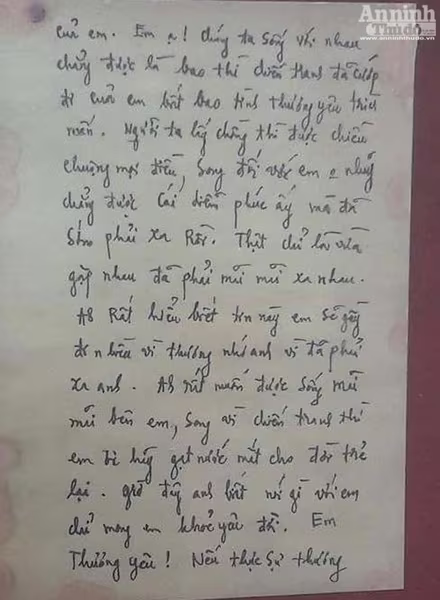 AnninhThudo.vn
www.anninhthudo.vn
của em. Em ạ! chúng ta sống với nhau
chẳng được là bao thì chiến tranh đã cướp
đi của em biết bao tình thương yêu trìu
mến. Người ta lấy chồng thì được chiều
chuộng mọi điều, Song đối với em
chẳng được Cái diễm phúc ấy mà đã
Sớm phải xa Rồi. Thật chỉ là vừa
gặp nhau đã phải mãi mãi xa nhau.
Ah Rất hiểu biết tin này em Sẽ gầy
đi nhiều vì thương nhớ anh vì đã phải
xa anh. Ah rất muốn được Sống mãi
mãi bên em, Song vì chiến tranh thì
em ơi hãy gạt nước mắt cho đời trẻ
lại. giờ đây anh biết nói gì với em
chỉ mong em khoẻ yêu đời. Em
Thương yêu! Nếu thực Sự thương